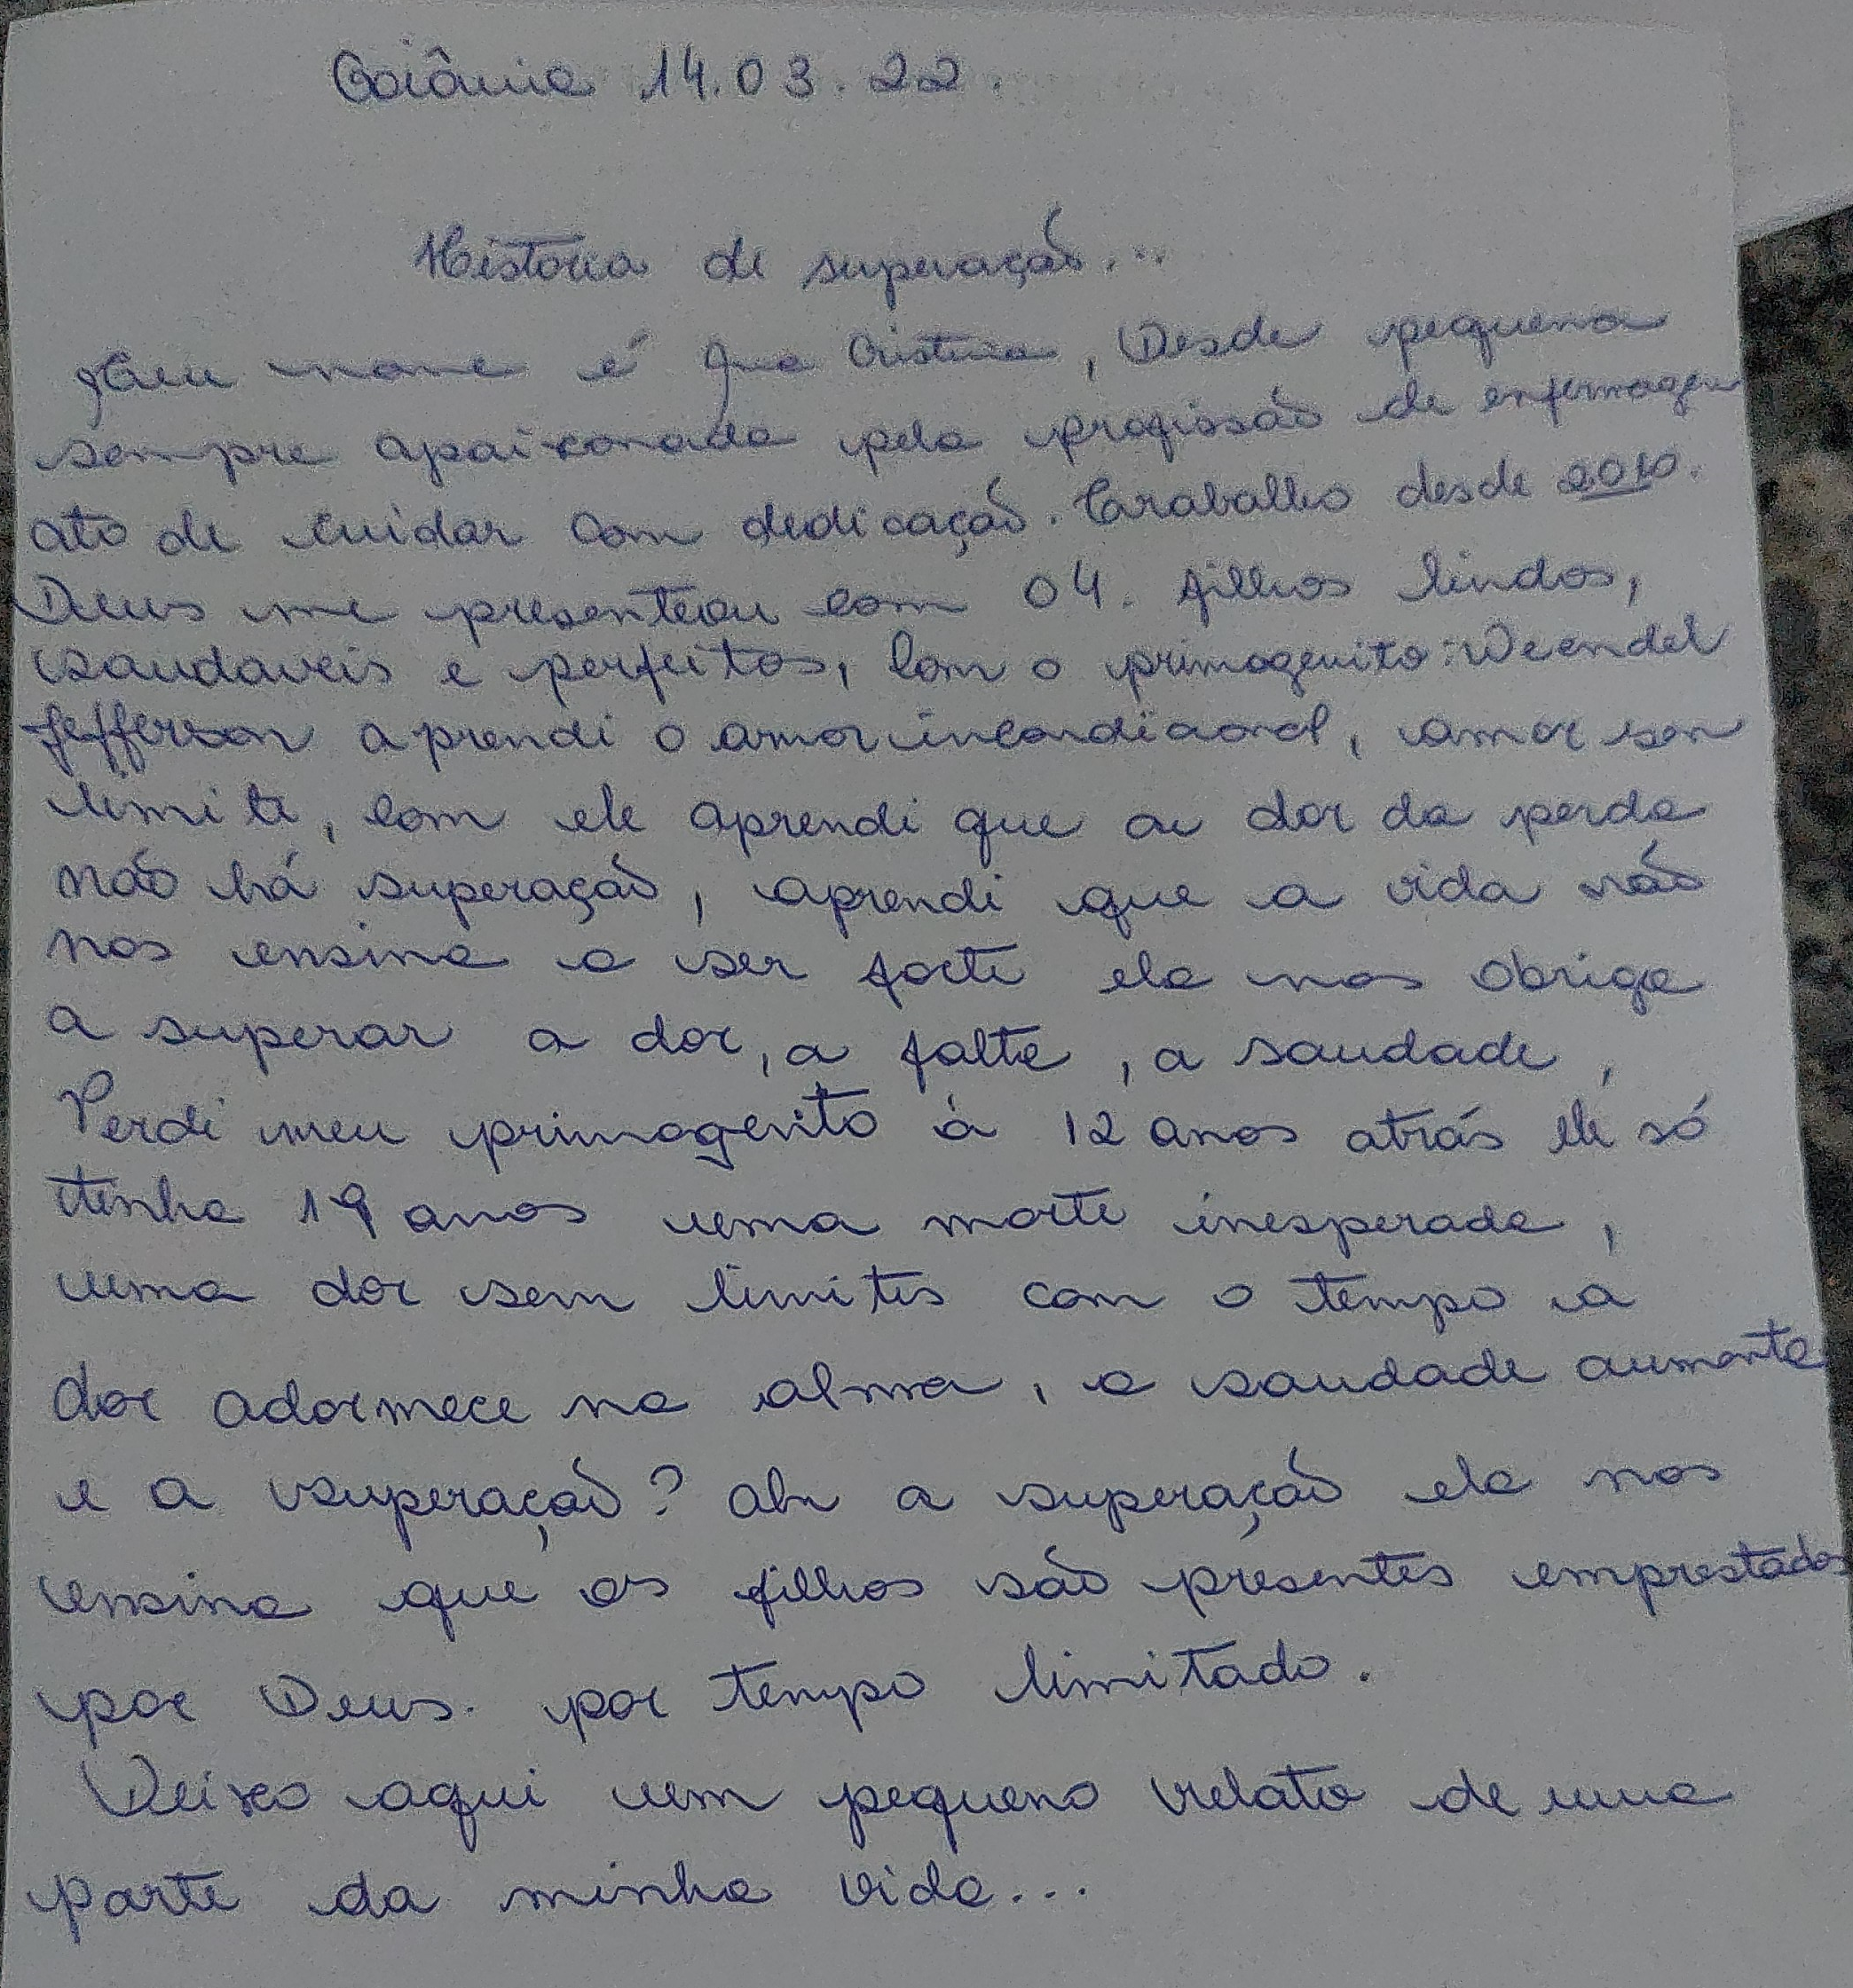 Goiânia 14.03.22.
Historia de superação...
Meu nome é Ana Cristina, Desde pequena
sempre apaixonada pela profissão de enfermagem
ato de cuidar com dedicação. Trabalho desde 2010.
Deus me presenteou com 04. filhos lindos,
saudaveis e perfeitos, com o primogenito: Weendel
Jefferson aprendi o amor incondicional, amor sem
limite, com ele aprendi que a dor da perda
não há superação, aprendi que a vida não
nos ensina a ser forte ela nos obriga
a superar a dor, a falta, a saudade,
Perdi meu primogenito à 12 anos atrás ele só
tinha 19 anos uma morte inesperada,
uma dor sem limites com o tempo a
dor adormece na alma, a saudade aumenta
e a superação? ah a superação ela nos
ensina que os filhos são presentes emprestados
por Deus. por tempo limitado.
Deixo aqui um pequeno relato de uma
parte da minha vida...